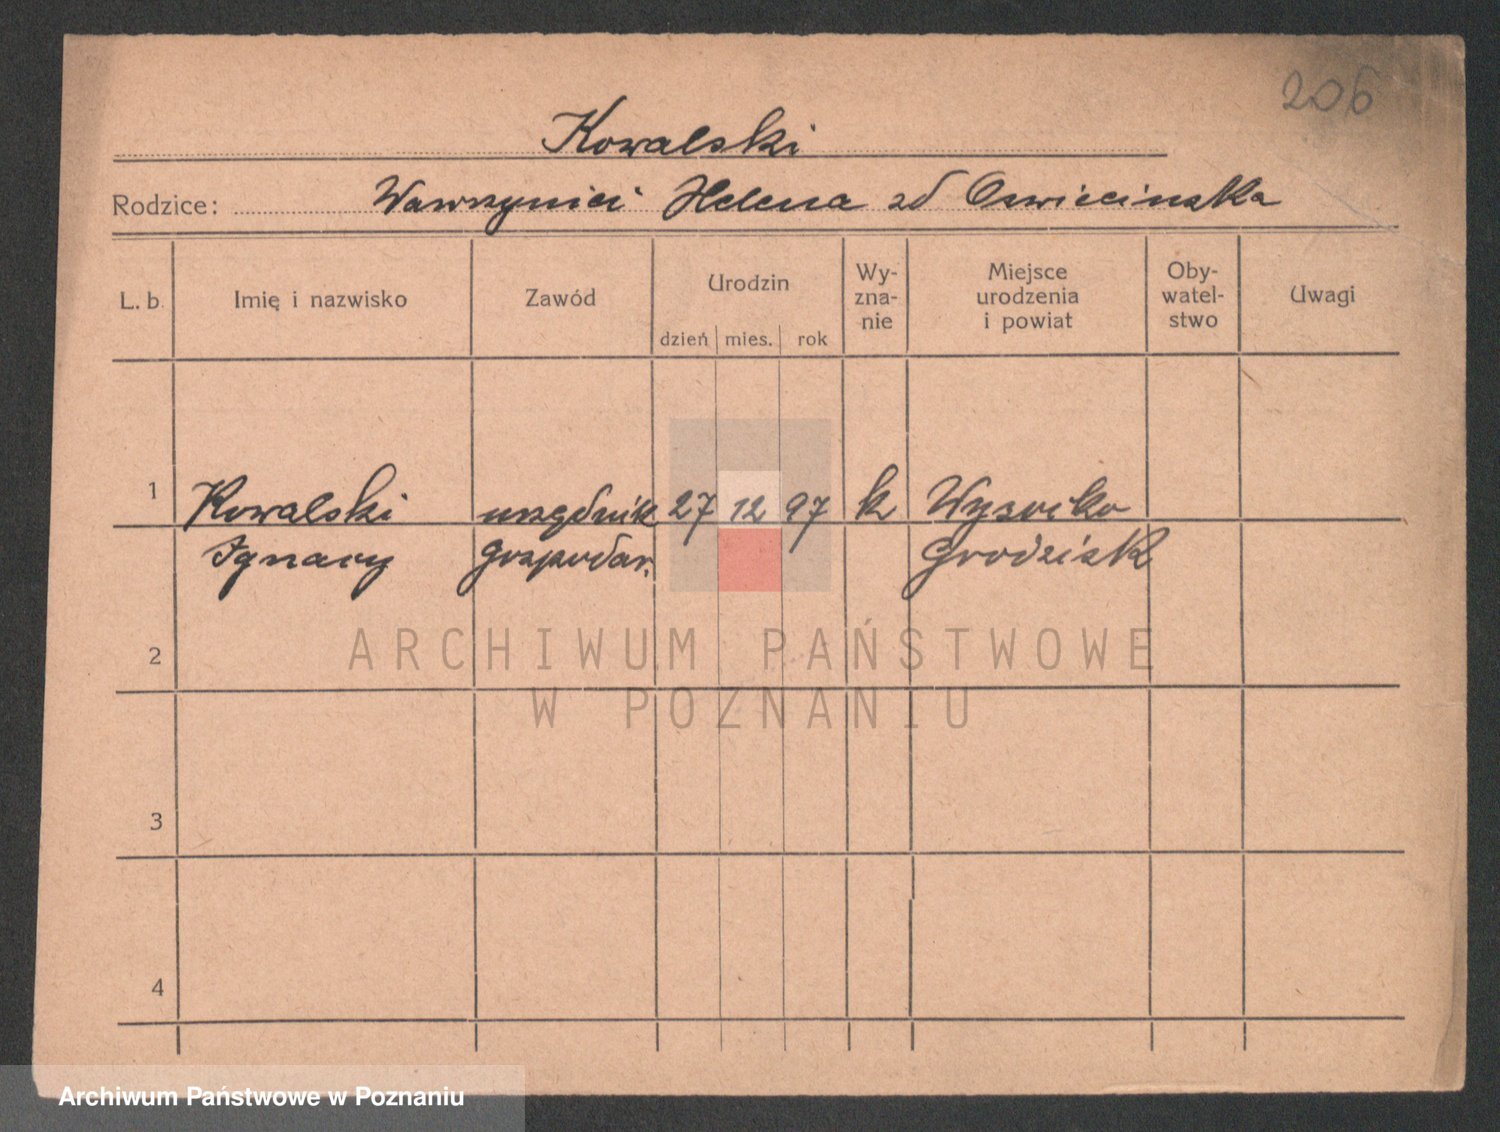 206
Kowalski
Rodzice: Wawrzyniec i Helena zd Oswiecinska
L. b. Imię i nazwisko Zawód Urodzin dzień mies. rok Wy-zna-nie Miejsce urodzenia i powiat Oby-watel-stwo Uwagi
1 Kowalski urzędnik 27 12 97 k Wysocko
Ignacy gospodar. Grodzisk
2
ARCHIWUM PAŃSTWOWE
W POZNANIU
3
4
Archiwum Państwowe w Poznaniu